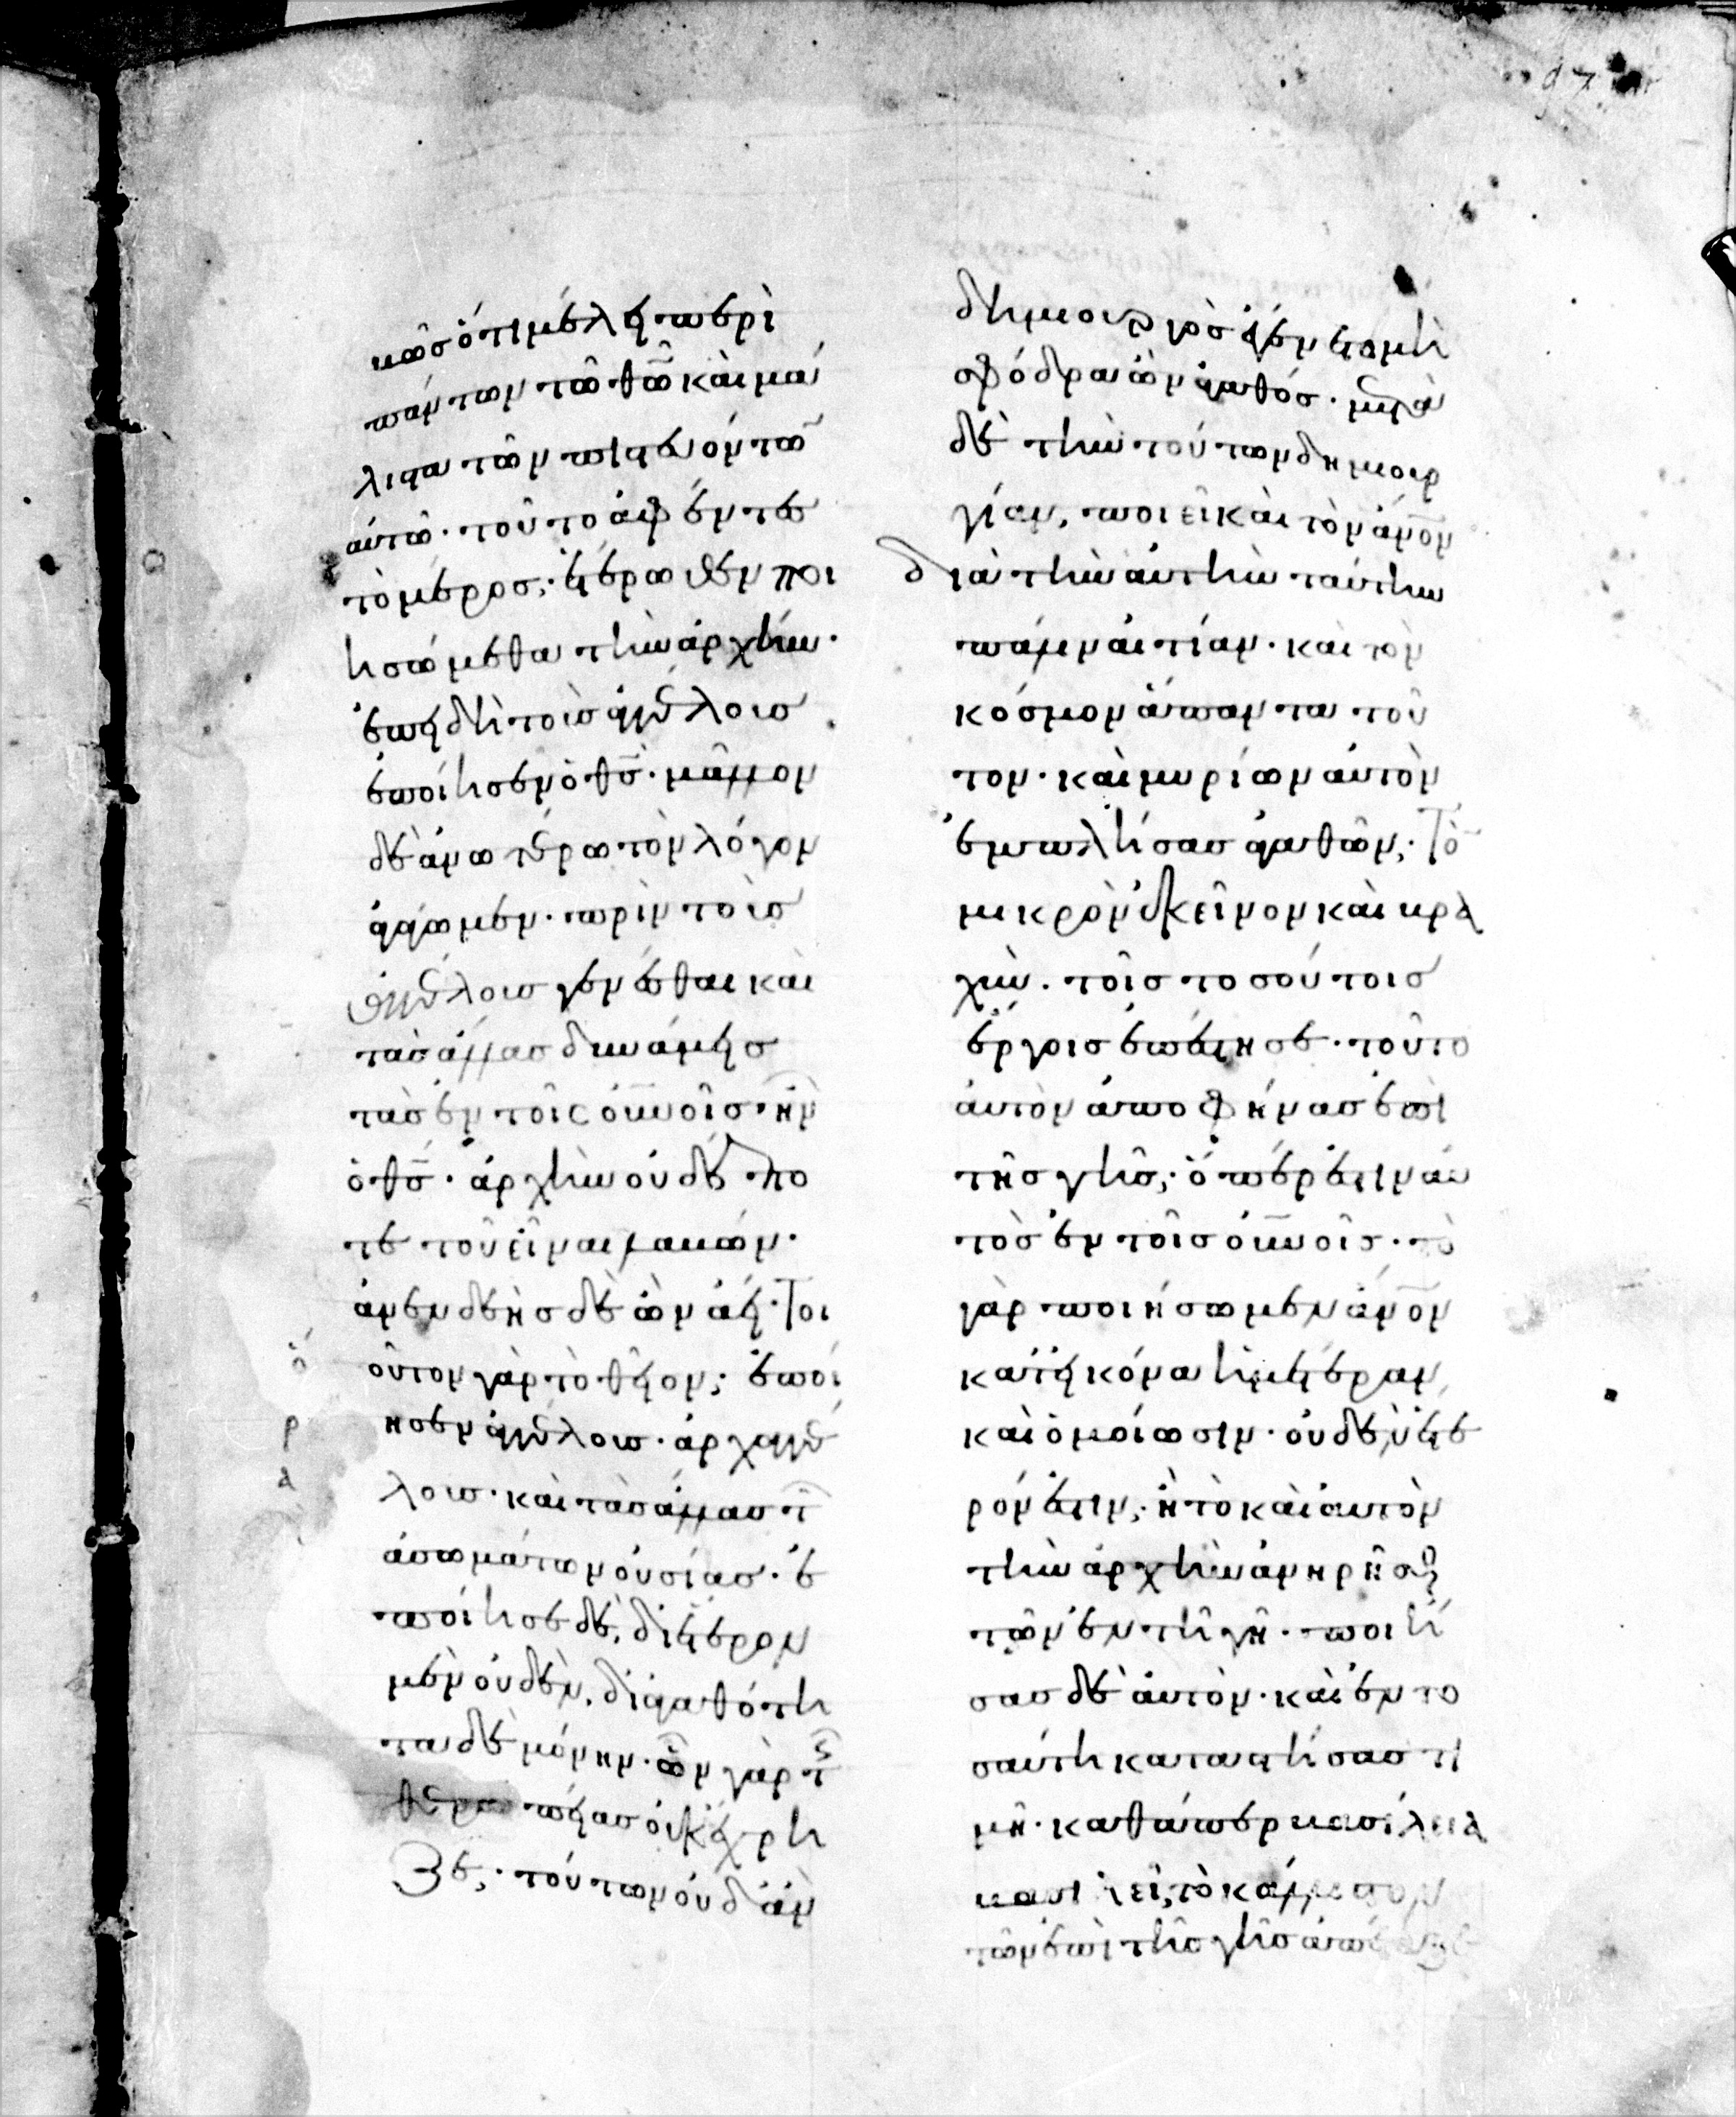 κῶς ὅτι μέλει περὶ
πάντων τῶ θῶ καὶ μά
λιστα τῶν πιστευόντω̅
αὐτῶ· τοῦτο ἀφέντες
τὸ μέρος, ἑτέρωθεν ποι
ησώμεθα τὴν ἀρχήν·
ἐπειδὴ τοὺς ἀγγέλους
ἐποίησεν ὁ θ̅ς̅· μᾶλλον
δὲ ἀνωτέρω τὸν λόγον
ἀγάγωμεν· πρὶν τοὺς
ἀγγέλους γενέσθαι καὶ
τὰς ἄλλας δυνάμεις
τὰς ἐν τοῖς οὐ̅νοῖς· ἦν
ὁ θ̅ς̅· ἀρχὴν οὐδέπο
τε τοῦ εἶναι λαβών·
ἀνενδεὴς δὲ ὢν ἀεί· Τοι
οῦτον γὰρ τὸ θεῖον, ἐποί
ησεν ἀγγέλους· ἀρχαγγέ
λους· καὶ τὰς ἄλλας τ̅
ἀσωμάτων οὐσίας· ἐ
ποίησε δὲ, δι' ἕτερον
μὲν οὐδὲν, δι' ἀγαθότη
τα δὲ μόνην· ὧν γὰρ τῆς
θερα πείας οὐκ ἔχρη
ζε, τούτων οὐδ' ἂν
δημιουργὸς ἐγένετο μὴ
σφόδρα ὢν ἀγαθός· μετὰ
δὲ τὴν τούτων δημιουρ
γίαν, ποιεῖ καὶ τὸν ἄν̅ον
διὰ τὴν αὐτὴν ταύτην
πάλιν αἰτίαν· καὶ τὸν
κόσμον ἅπαντα τοῦ
τον· καὶ μυρίων αὐτὸν
ἐμπλήσας ἀγαθῶν, Τὸν
μικρὸν ἐκεῖνον καὶ βρα
χὺν· τοῖς τοσούτοις
ἔργοις ἐπέστησε· τοῦτο
αὐτὸν ἀποφήνας ἐπὶ
τῆς γῆς, ὅπερ ἐστὶν αὐ
τὸς ἐν τοῖς οὐ̅νοῖς· τὸ
γὰρ ποιήσωμεν ἄν̅ον
κατ' εἰκόνα ἡμετέραν
καὶ ὁμοίωσιν· οὐδὲν ἕτε
ρόν ἐστιν, ἢ τὸ καὶ αὐτὸν
τὴν ἀρχὴν ἀνηρῆσθαι
τῶν ἐν τῆ γῆ· ποιή
σας δὲ αὐτὸν· καὶ ἐν το
σαύτη καταστήσας τι
μῆ· καθάπερ βασίλεια
βασιλεῖ, τὸ κάλλιστον
τῶν ἐπὶ τῆς γῆς ἀπένειμε
ό
ρ
α